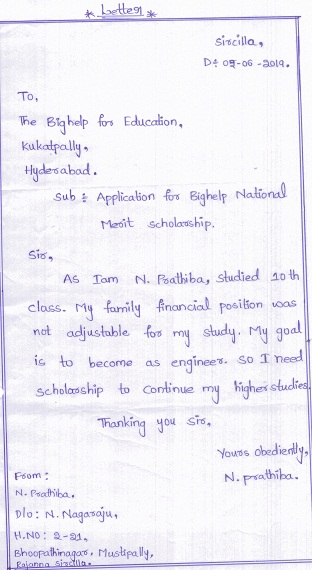 * Letter *
Sircilla,
D: 09-06-2019.
To,
The Bighelp for Education,
Kukatpally,
Hyderabad.
Sub : Application for Bighelp National
Merit scholarship.
Sir,
As Iam N. Prathiba, studied 10th
class. My family financial position was
not adjustable for my study. My goal
is to become as engineer. So I need
scholarship to Continue my higher studies.
Thanking you sir,
Yours obediently,
N. prathiba.
From :
N. Prathiba,
D/o : N. Nagaraju,
H.NO : 2-21,
Bhoopathinagar, Mustipally,
Rajanna Sircilla.